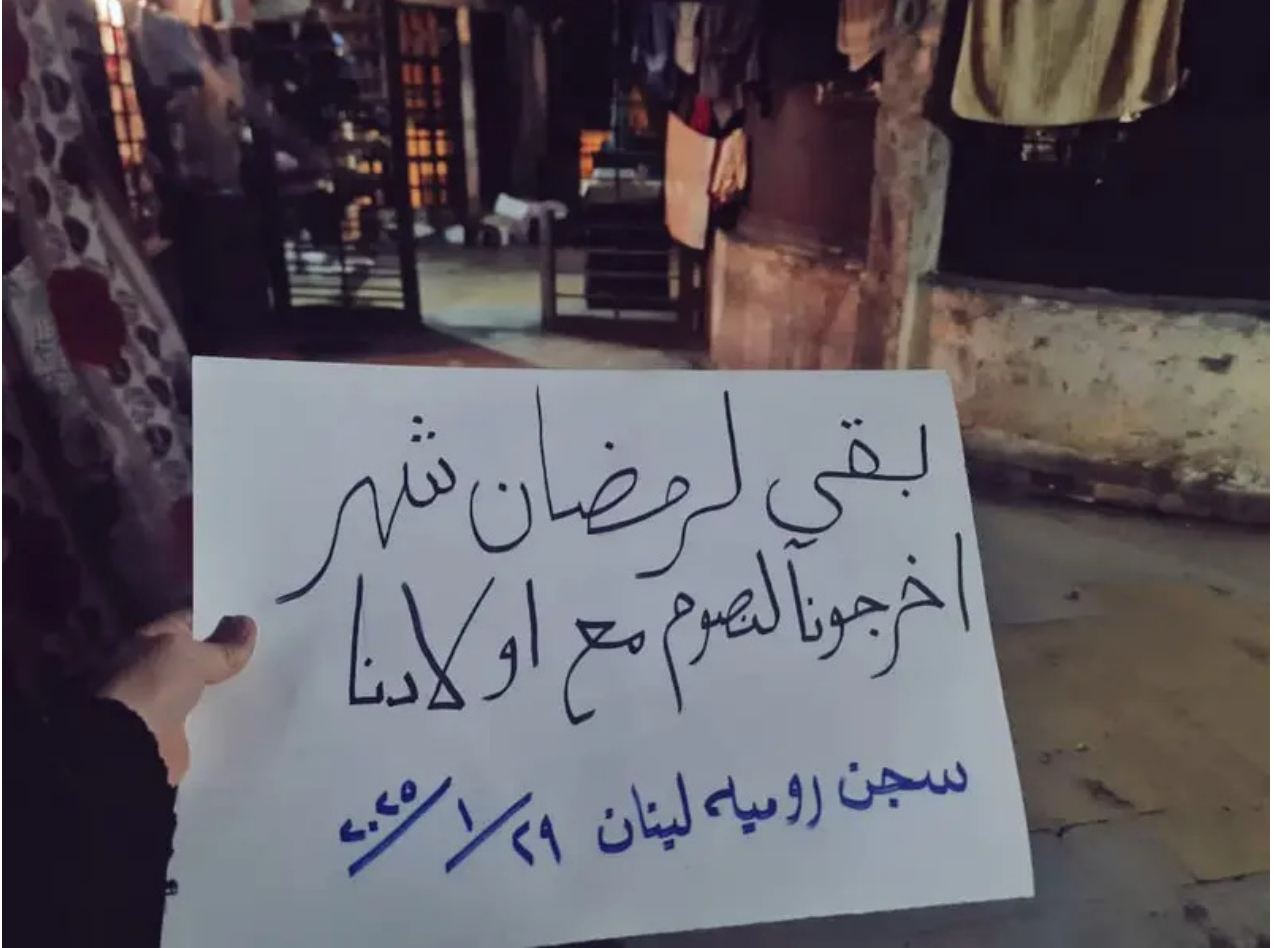 بقي لرمضان شهر
اخرجونآ لنصوم مع اولادنا
سجن روميه لبنان ٢٩/١/٢٠٢٥